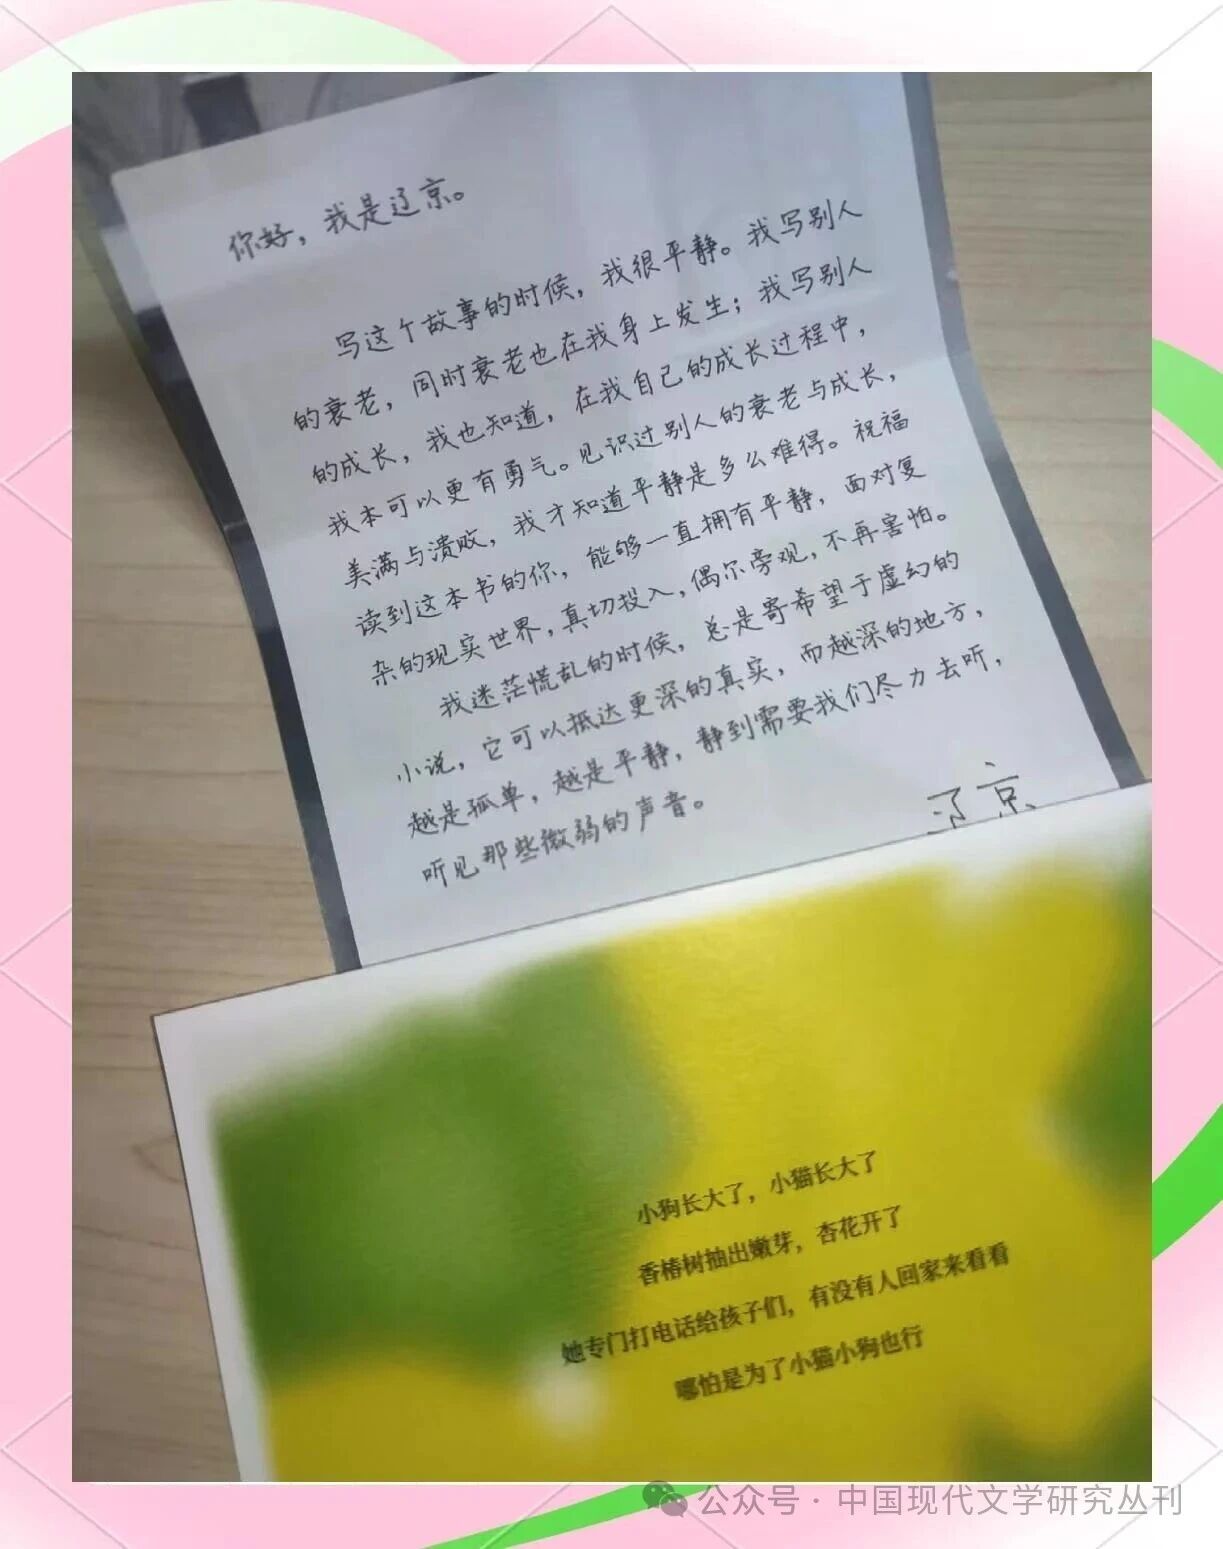 你好，我是辽京。
写这个故事的时候，我很平静。我写别人
的衰老，同时衰老也在我身上发生；我写别人
的成长，我也知道，在我自己的成长过程中，
我本可以更有勇气。见识过别人的衰老与成长，
美满与溃败，我才知道平静是多么难得。祝福
读到这本书的你，能够一直拥有平静，面对复
杂的现实世界，真切投入，偶尔旁观，不再害怕。
我迷茫慌乱的时候，总是寄希望于虚幻的
小说，它可以抵达更深的真实，而越深的地方，
越是孤单，越是平静，静到需要我们尽力去听，
听见那些微弱的声音。
辽京
小狗长大了，小猫长大了
香椿树抽出嫩芽，杏花开了
她专门打电话给孩子们，有没有人回家来看看
哪怕是为了小猫小狗也行
公众号·中国现代文学研究丛刊